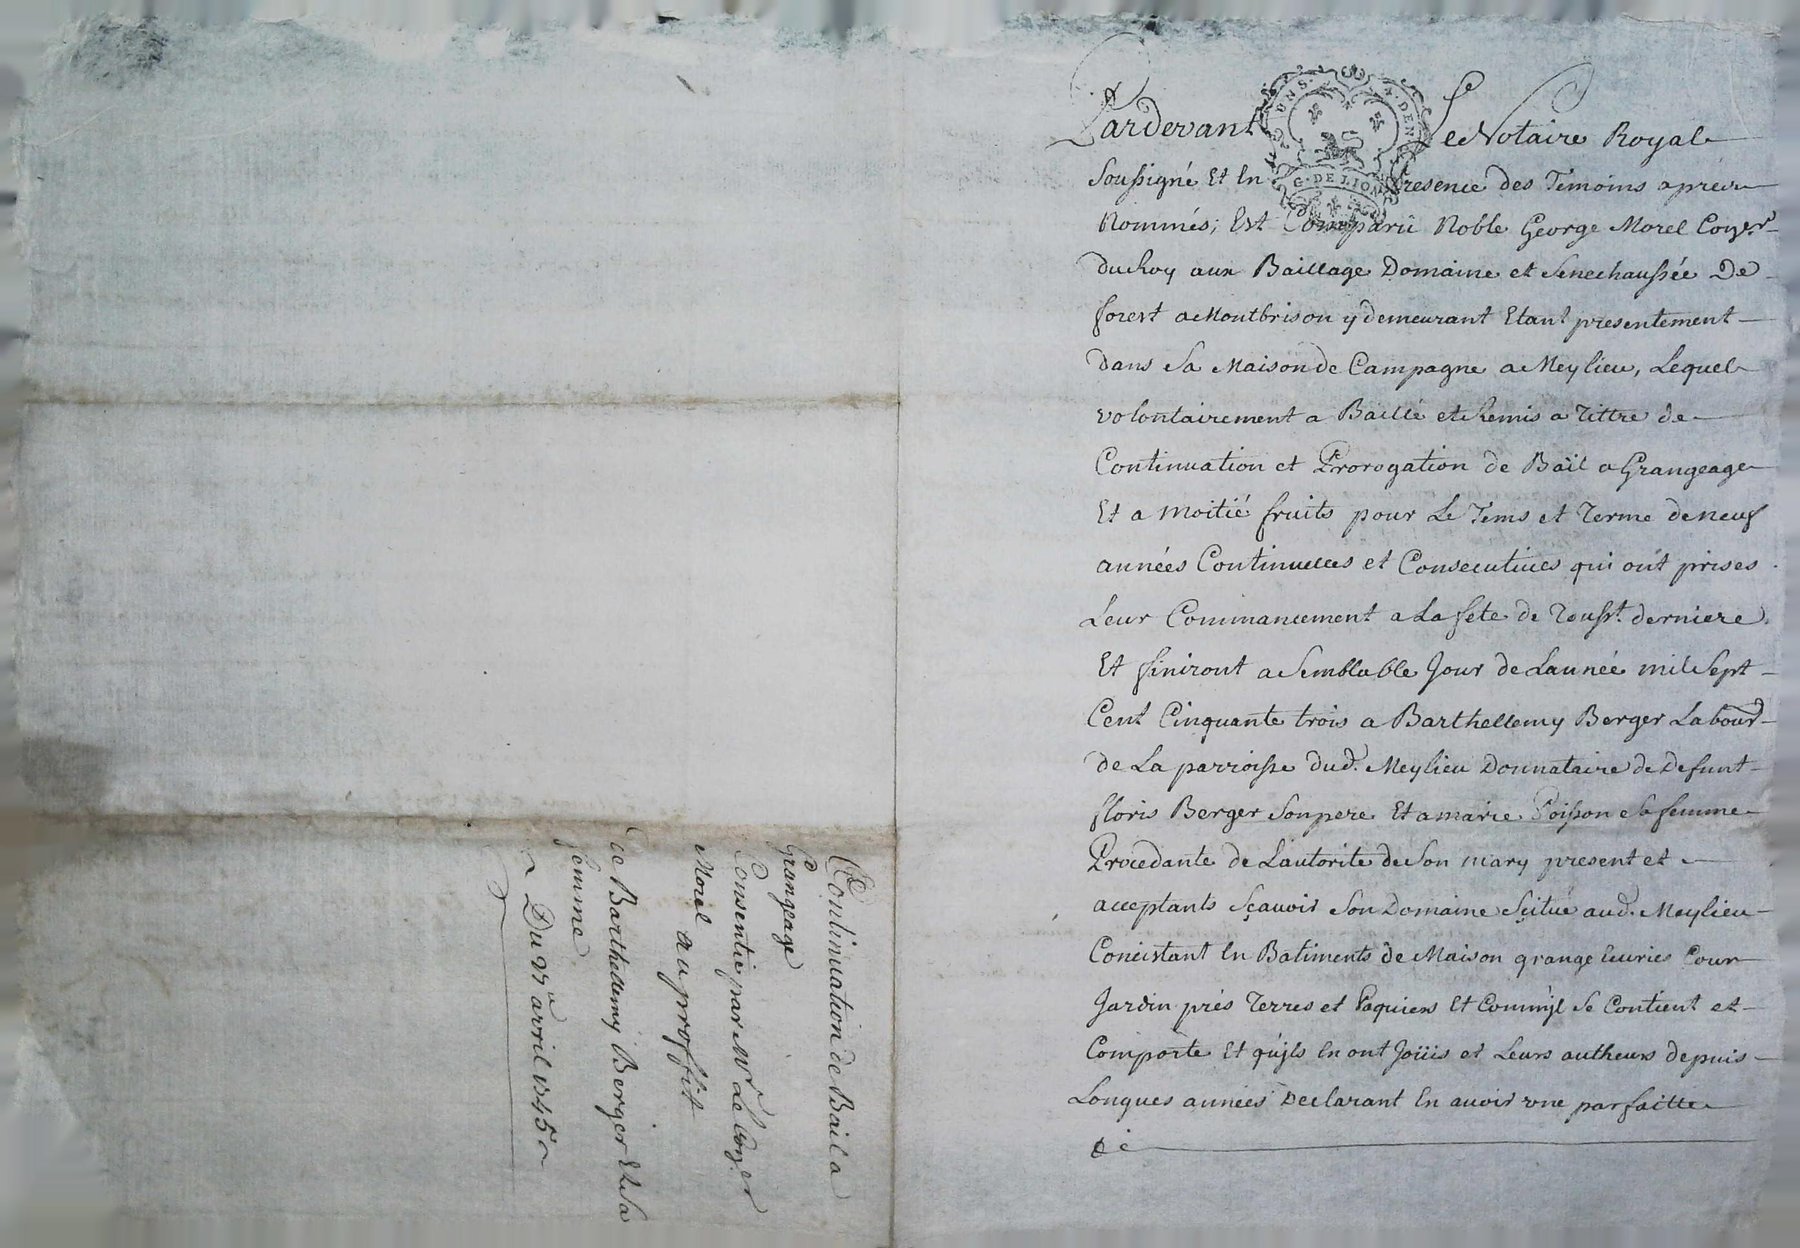 Pardevant Le Notaire Royal
Soussigné Et En Presence des Temoins aprez
Nommés; Est Comparû Noble George Morel Coner
du Roy aux Baillage Domaine et Senechaussée De
forest a Montbrison y demeurant Etant presentement
dans Sa Maison de Campagne a Meylieu, Lequel
volontairement a Baillé et Remis a Tittre de
Continuation et Prorogation de Bail a Grangeage
Et a Moitié fruits pour Le Tems et Terme de neuf
années Continuelles et Consecutives qui ont prises
Leur Commancement a La fete de Tousst. derniere
Et finiront a Semblable Jour de Lannée mil Sept
Cent Cinquante trois a Barthellemy Berger Labour
de La parroisse dud. Meylieu Donnataire de Defunt
floris Berger Son pere Et a marie Poisson Sa femme
Procedante de Lautorite de Son mary present et
acceptants Sçavoir Son Domaine Scitué aud. Meylieu
Concistant En Batiments de Maison grange Ecuries Cour
Jardin prés Terres et Paquiers Et Comm'jl Se Contient et
Comporte Et qu'jls En ont Joüis et Leurs autheurs depuis
Longues années Declarant En avoir une parfaitte
G. DE LION
DEN
Continuation de Bail a
Grangeage
Consentie par Mr Le Coner
Morel au proffit
de Barthellemy Berger Et Sa
femme
Du avril 1745